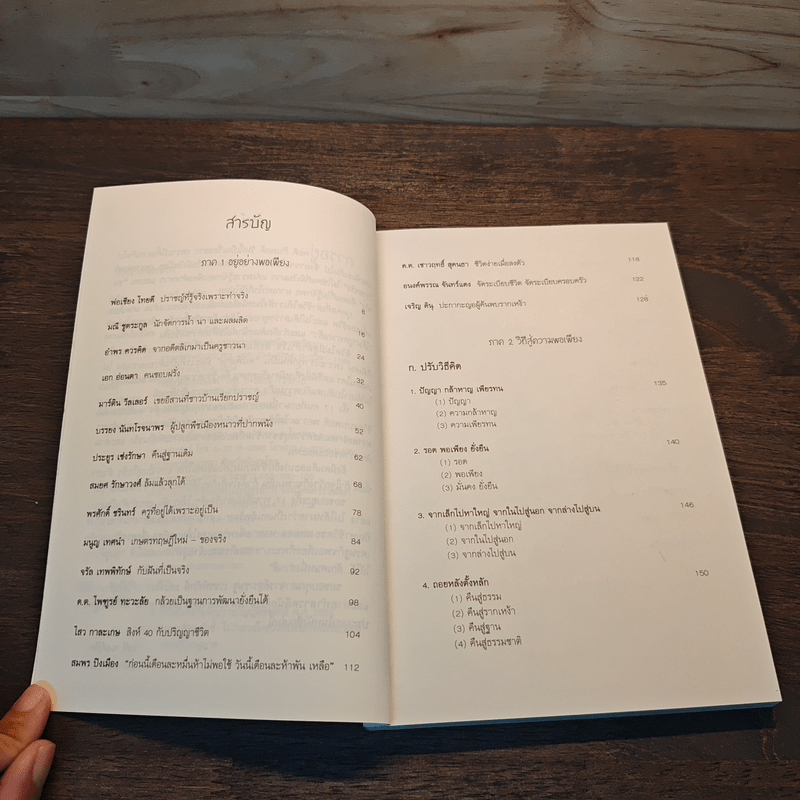 สารบัญ
ภาค 1 อยู่อย่างพอเพียง
พ่อเชียง ไทยดี ปราชญ์ที่รู้จริงเพราะทำจริง 6
มณี ชูตระกูล นักจัดการน้ำ นา และผลผลิต 16
อำพร ควรคิด จากอดีตลิเกมาเป็นครูชาวนา 24
เอก อ่อนตา คนชอบฝรั่ง 32
มาร์ติน วีลเลอร์ เขยอีสานที่ชาวบ้านเรียกปราชญ์ 40
บรรยง นันทโรจนาพร ผู้ปลูกพืชเมืองหนาวที่ปากพนัง 52
ประยูร เช่งรักษา คืนสู่ฐานเดิม 62
สมยศ รักษาวงศ์ ล้มแล้วลุกได้ 68
พรศักดิ์ ชรินทร์ ครูที่อยู่ได้เพราะอยู่เป็น 78
มนูญ เทศนำ เกษตรทฤษฎีใหม่ - ของจริง 84
จรัล เทพพิทักษ์ กับฝันที่เป็นจริง 92
ด.ต. ไพฑูรย์ ทะวะลัย กล้วยเป็นฐานการพัฒนายั่งยืนได้ 98
ไสว กาละเกษ สิงห์ 40 กับปริญญาชีวิต 104
สมพร ปิงเมือง "ก่อนนี้เดือนละหมื่นห้าไม่พอใช้ วันนี้เดือนละห้าพัน เหลือ" 112
ด.ต. เชาวฤทธิ์ สุคนธา ชีวิตง่ายเมื่อลงตัว 118
อนงค์พรรณ จันทร์แดง จัดระเบียบชีวิต จัดระเบียบครอบครัว 122
เจริญ ดินุ ปะกากะญอผู้ค้นพบรากเหง้า 128
ภาค 2 วิถีสู่ความพอเพียง
ก. ปรับวิธีคิด
1. ปัญญา กล้าหาญ เพียรทน 135
(1) ปัญญา
(2) ความกล้าหาญ
(3) ความเพียรทน
2. รอด พอเพียง ยั่งยืน 140
(1) รอด
(2) พอเพียง
(3) มั่นคง ยั่งยืน
3. จากเล็กไปหาใหญ่ จากในไปสู่นอก จากล่างไปสู่บน 146
(1) จากเล็กไปหาใหญ่
(2) จากในไปสู่นอก
(3) จากล่างไปสู่บน
4. ถอยหลังตั้งหลัก 150
(1) คืนสู่ธรรม
(2) คืนสู่รากเหง้า
(3) คืนสู่ฐาน
(4) คืนสู่ธรรมชาติ